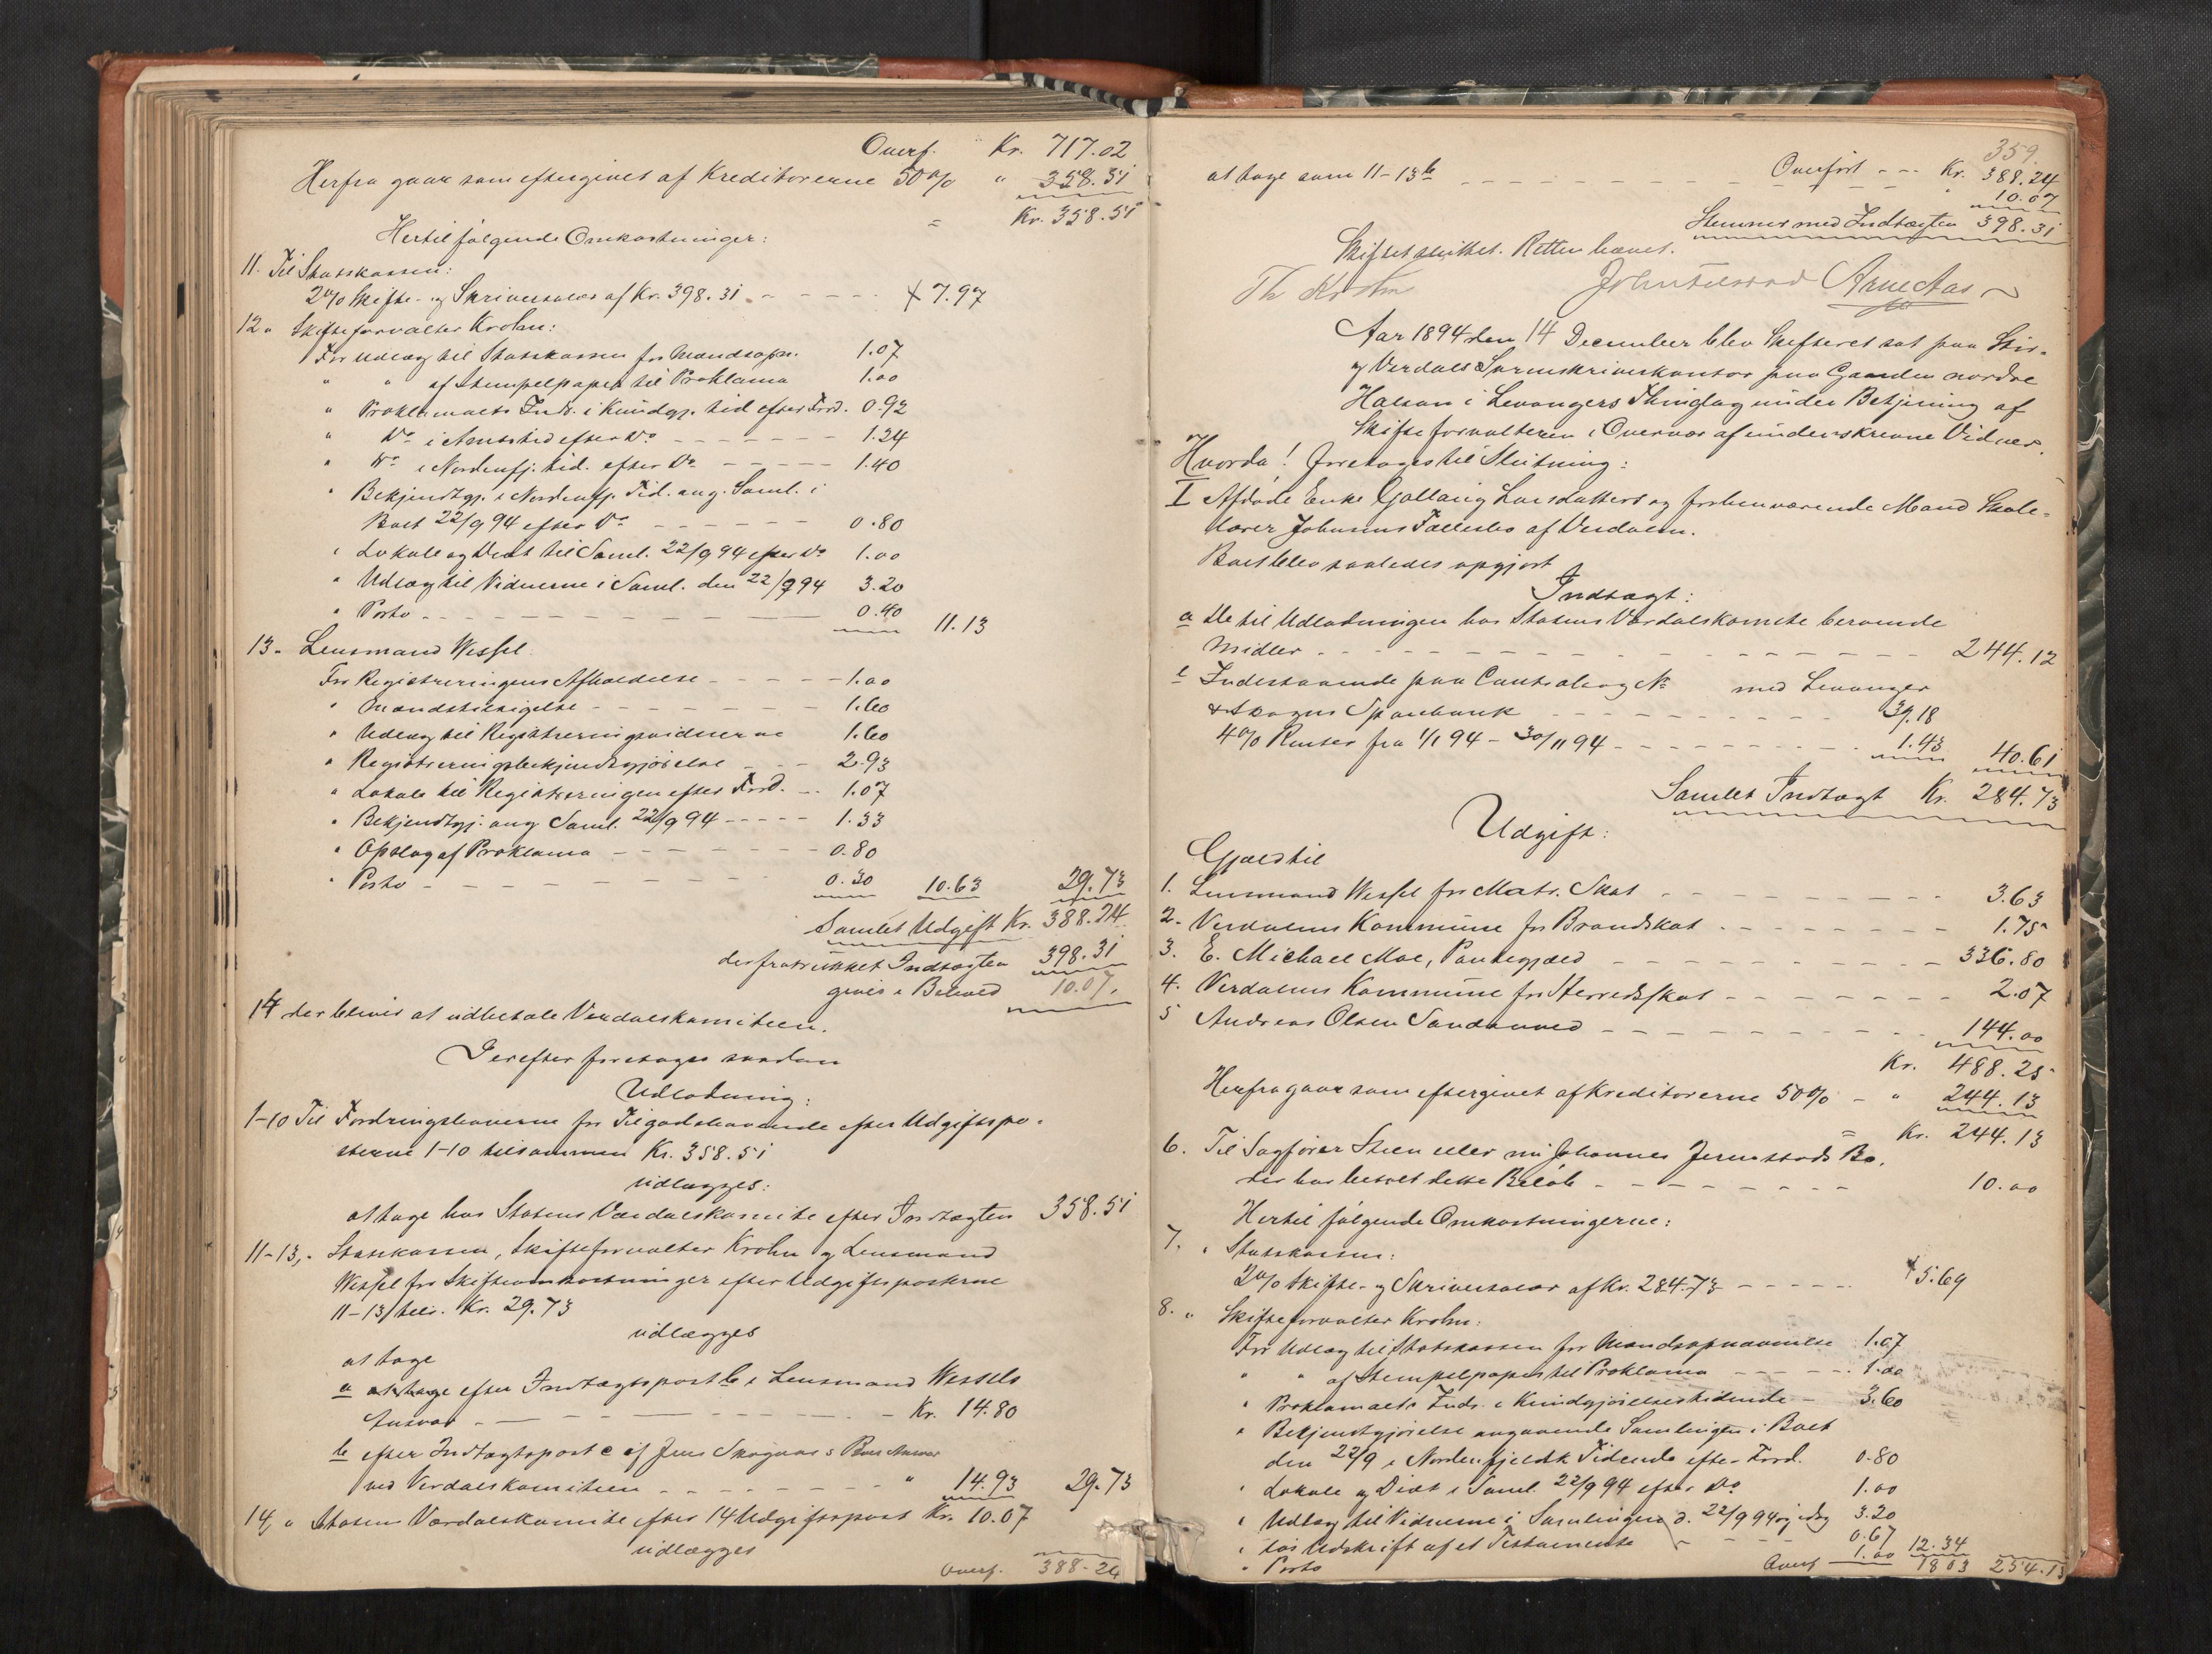 Overf. Kr. 717.02
Herfra gaar som eftergivet af Kreditorerne 50% " 358.51
= Kr. 358.51
Hertil følgende Omkostninger:
11. Til Statskassen:
2% Skifte- og Skriversalær af Kr. 398.31 - - - - - 7.97
12 " Skifteforvalter Krohn:
For Udlæg til Statskassen for Mandsopn. 1.07
" " af Stempelpapir til Proklama 1.00
" Proklamaets Indr. i Kundgj. tid efter Ford. 0.92
" Do i Amtstid efter Do - - - - - - - 1.24
" Do i Nordenfj. tid. efter Do - - - - - 1.40
" Bekjendtgj. i Nordenfj. Tid. ang. Saml. i
Boet 22/9 94 efter Do - - - - - - 0.80
" Lokale og Diæt til Saml. 22/9 94 efter Do 1.00
" Udlæg til Vidnerne i Saml. den 22/9 94 3.20
" Porto - - - - - - - - 0.40 11.13
13 " Lensmand Wessel
For Registreringens Afholdelse - - - - - 1.00
" Mandstilsigelse - - - - - - - 1.60
" Udlæg til Registreringsvidnerne 1.60
" Registreringsbekjendtgjørelse - - - 2.93
" Lokale til Registreringen efter Ford. - - 1.07
" Bekjendtgj. ang. Saml. 22/9 94 - - - - - 1.33
" Opslag af Proklama - - - - - - - 0.80
" Porto - - - - - - - - 0.30 10.63 29.73
Samlet Udgift Kr. 388.24
der fratrukket Indtægten 398.31
giver i Behold 10.07.
14 der bliver at udbetale Verdalskomiteen.
Derefter foretages saadan
Udlodning:
1-10 Til Fordringshaverne for Tilgodehavende efter Udgiftspo-
sterne 1-10 tilsammen Kr. 358.51
udlægges:
at tage hos Statens Værdalskomite efter Indtægten 358.51
11-13, " Statskassen, Skifteforvalter Krohn og Lensmand
Wessel for Skifteomkostninger efter Udgiftsposterne
11-13 tils. Kr. 29.73
udlægges
at tage
a at tage efter Indtægtspost b i Lensmand Wessels
Ansvar - - - - - - - - - Kr. 14.80
b efter Indtægtspost c af Jens Skognæs's Boes Ansvar
ved Verdalskomiteen - - - - - - - " 14.93 29.73
14, " Statens Værdalskomite efter 14 Udgiftspost Kr. 10.07
udlægges
Overf. 388.24
359.
Overført - - - Kr. 388.24
at tage som 11-13 b - - - - - - - - - - - 10.07
Stemmer med Indtægten 398.31
Skiftet sluttet. Retten hævet.
Th Krohn Arne Aas
Aar 1894 den 14 December blev Skifteret sat paa Stør-
og Verdals Sorenskriverkontor paa Gaarden nordre
Halsan i Levangers Thinglag under Betjening af
Skifteforvalteren i Overvær af underskrevne Vidner.
Hvorda! foretages til Slutning:
I Afdøde Enke Gollaug Larsdatters og forhenværende Mand Skole-
lærer Johannes Fællesbo af Verdalen.
Boet blev saaledes opgjort
Indtægt:
a De til Udlodningen hos Statens Værdalskomite beroende
Midler - - - - - - - - - - - - - 244.12
b Indestaaende paa Contrabog No med Levanger
& Skogns Sparebank - - - - - - - - - 39.18
4% Renter fra 1/1 94 - 30/11 94 - - - - - - - 1.43 40.61
Samlet Indtægt Kr. 284.73
Udgift:
Gjæld til
1. Lensmand Wessel for Matr. Skat - - - - - - - - 3.63
2. Verdalens Kommune for Brandskat - - - - - - - 1.75
3. E. Michael Moe, Pantegjæld - - - - - - - - - 336.80
4. Verdalens Kommune for Herredsskat - - - - - - 2.07
5 Andreas Olsen Sandanved - - - - - - - - - 144.00
Kr. 488.25
Herfra gaar som eftergivet af Kreditorerne 50% - " 244.13
= Kr. 244.13
6. Til Sagfører Steen eller nu Johannes Jermstads Bo,
der har betalt dette Beløb - - - - - - - - - 10.00
Hertil følgende Omkostningerne:
7. " Statskassen:
2% Skifte- og Skriversalær af Kr. 284.73 - - - - - 5.69
8. " Skifteforvalter Krohn:
For Udlæg til Statskassen for Mandsopnævnelse 1.07
" " af Stempelpapir til Proklama - - - - - 1.00
" Proklamaets Indr. i Kundgjørelsestidende - 3.60
" Bekjendtgjørelse angaaende Samlingen i Boet
den 22/9 i Nordenfjeldsk Tidende efter Ford. 0.80
" Lokale og Diæt i Saml. 22/9 94 efter Do 1.00
" Udlæg til Vidnerne i Samlingen d. 22/9 94 og idag 3.20
" for Udskrift af et Testamente - - - - 0.67
" Porto 1.00 12.34
Overf 18 03 254.13